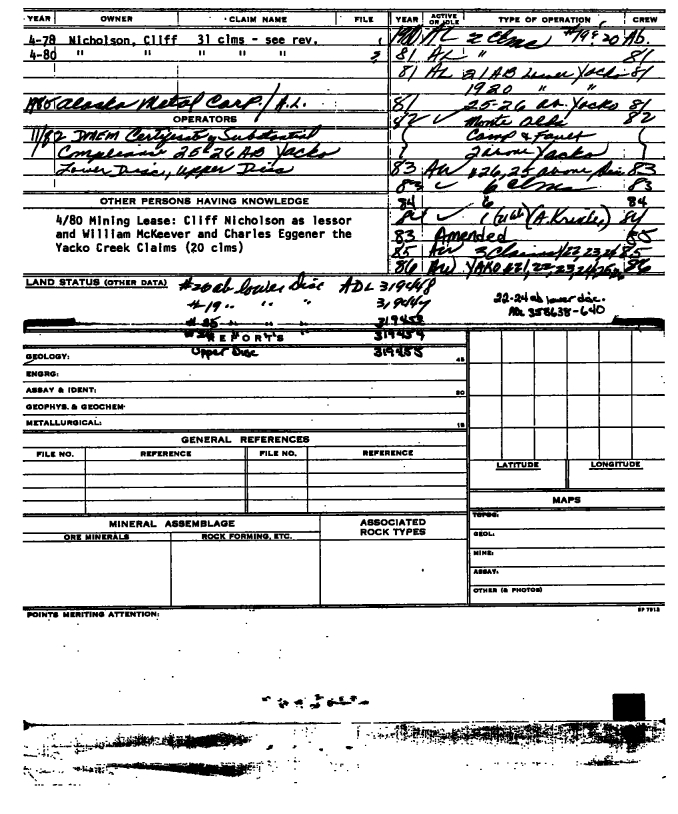 YEAR OWNER CLAIM NAME FILE YEAR ACTIVE OR IDLE TYPE OF OPERATION CREW
4-78 Nicholson, Cliff 31 clms - see rev. 1
4-80 " " " " " 2
1980 AL 2 Clms #19 & 20 Ab.
81 AL " 81
81 AL 21 AB Lower Yacko 81
1920 " "
1980 Alaska Metal Corp. / A.L.
81 25-26 ab. Yacko 81
OPERATORS
82 ✓ Monte Alki 82
11/82 DMEM Certificate of Substantial
Compliance 25-26 AB Yacko
Lower Disc, Upper Disc
Comp & Fault
2 above Yacko
83 AW #26, 25 above Disc 83
83 ✓ 6 Clms 83
OTHER PERSONS HAVING KNOWLEDGE
84 6 84
84 ✓ 1 (21ab) (A. Kreider) 84
4/80 Mining Lease: Cliff Nicholson as lessor
and William McKeever and Charles Eggener the
Yacko Creek Claims (20 clms)
83 Amended 85
85 AW 3 Claims #22, 23, 24 85
86 AW YAKO #21, 22, 23, 24, 25 86
LAND STATUS (OTHER DATA) #20 ab lower Disc ADL 319448
#19 " " " 319447
22-24 ab lower disc.
ADL 358638-640
#25 " " 319453
REPORTS 319454
Upper Disc 319455
GEOLOGY: 45
ENGRG:
ASSAY & IDENT: 30
GEOPHYS. & GEOCHEM-
METALLURGICAL: 15
GENERAL REFERENCES
FILE NO. REFERENCE FILE NO. REFERENCE
LATITUDE LONGITUDE
MAPS
MINERAL ASSEMBLAGE ASSOCIATED ROCK TYPES
ORE MINERALS ROCK FORMING, ETC.
TOPOG:
GEOL:
MINE:
ASSAY:
OTHER (& PHOTOS)
POINTS MERITING ATTENTION:
SP 7912